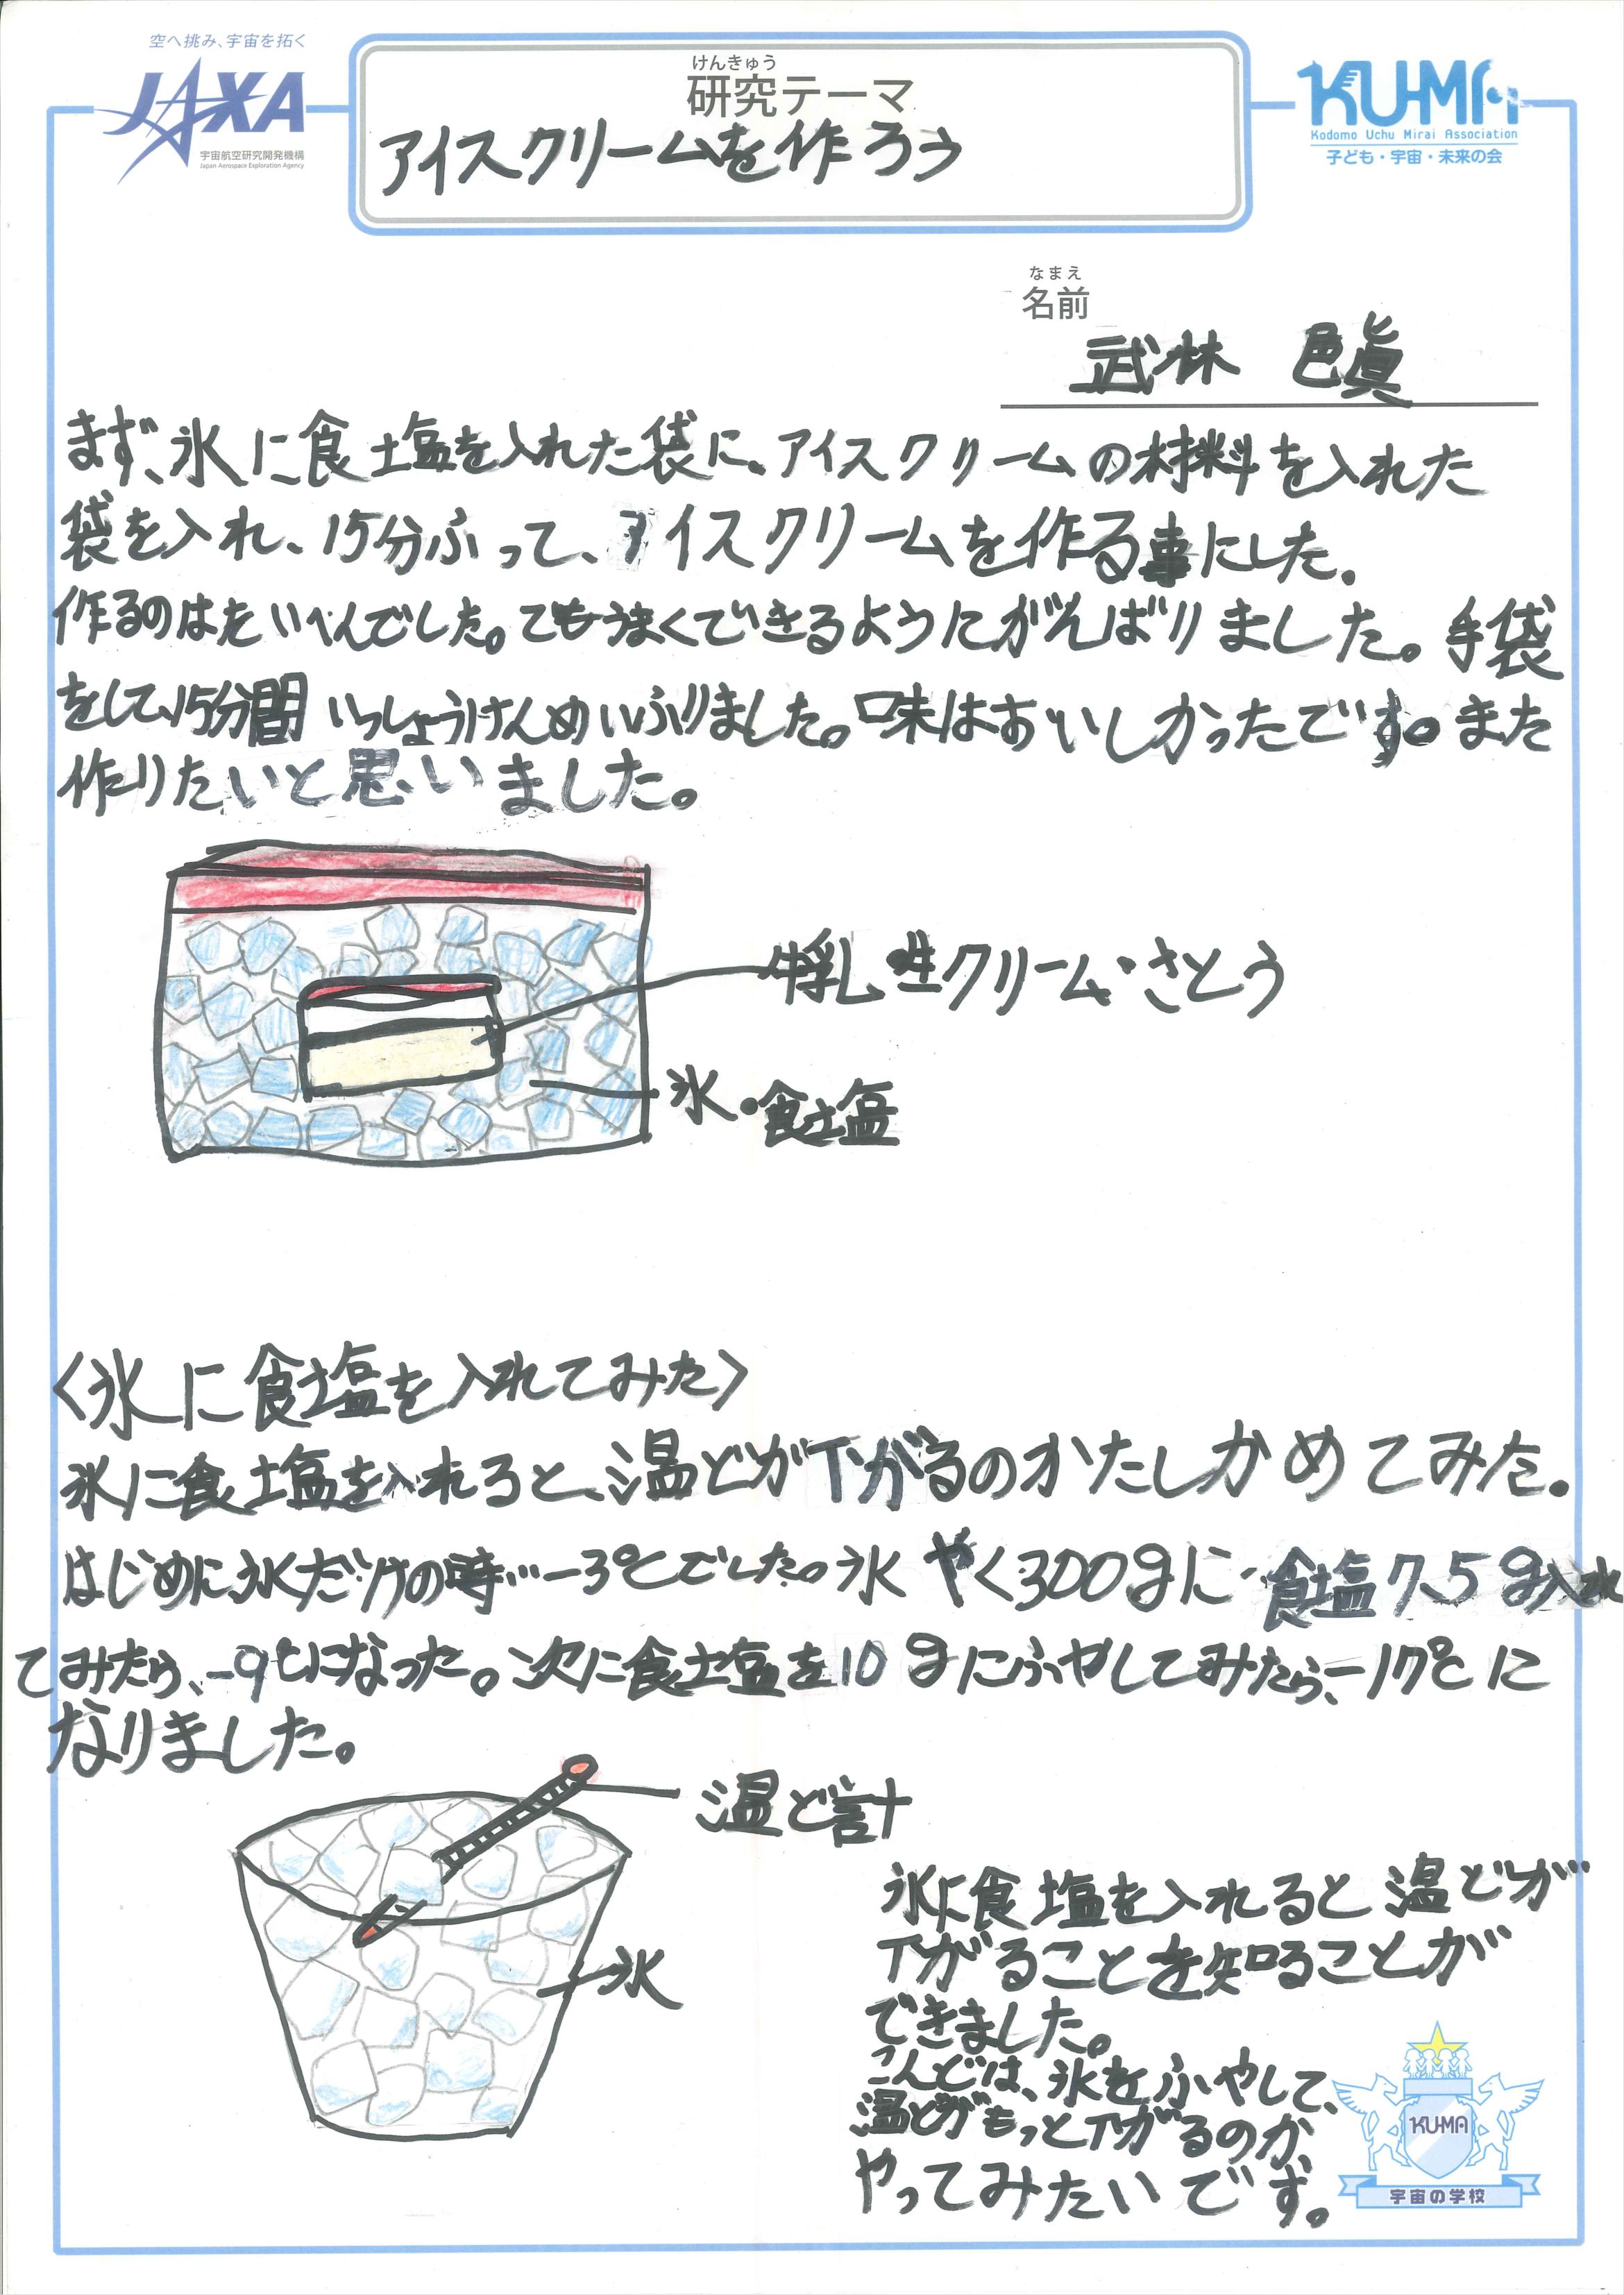 空へ挑み、宇宙を拓く
JAXA
宇宙航空研究開発機構
Japan Aerospace Exploration Agency
けんきゅう
研究テーマ
アイスクリームを作ろう
KUMA
Kodomo Uchu Mirai Association
子ども・宇宙・未来の会
なまえ
名前
武林 色眞
まず、氷に食塩を入れた袋に、アイスクリームの材料を入れた
袋を入れ、15分ふって、アイスクリームを作る事にした。
作るのはたいへんでした。でもうまくできるようにがんばりました。手袋
をして、15分間いっしょうけんめいふりました。味はおいしかったです。また
作りたいと思いました。
牛乳 生クリーム・さとう
氷・食塩
〈氷に食塩を入れてみた〉
氷に食塩を入れると、温どが下がるのかたしかめてみた。
はじめに氷だけの時…-3℃でした。氷 やく300gに 食塩7.5g入れ
てみたら、-9℃になった。次に食塩を10gにふやしてみたら、-17℃に
なりました。
温ど計
氷
氷に食塩を入れると温どが
下がることを知ることが
できました。
こんどは、氷をふやして、
温どがもっと下がるのか、
やってみたいです。
KUMA
宇宙の学校